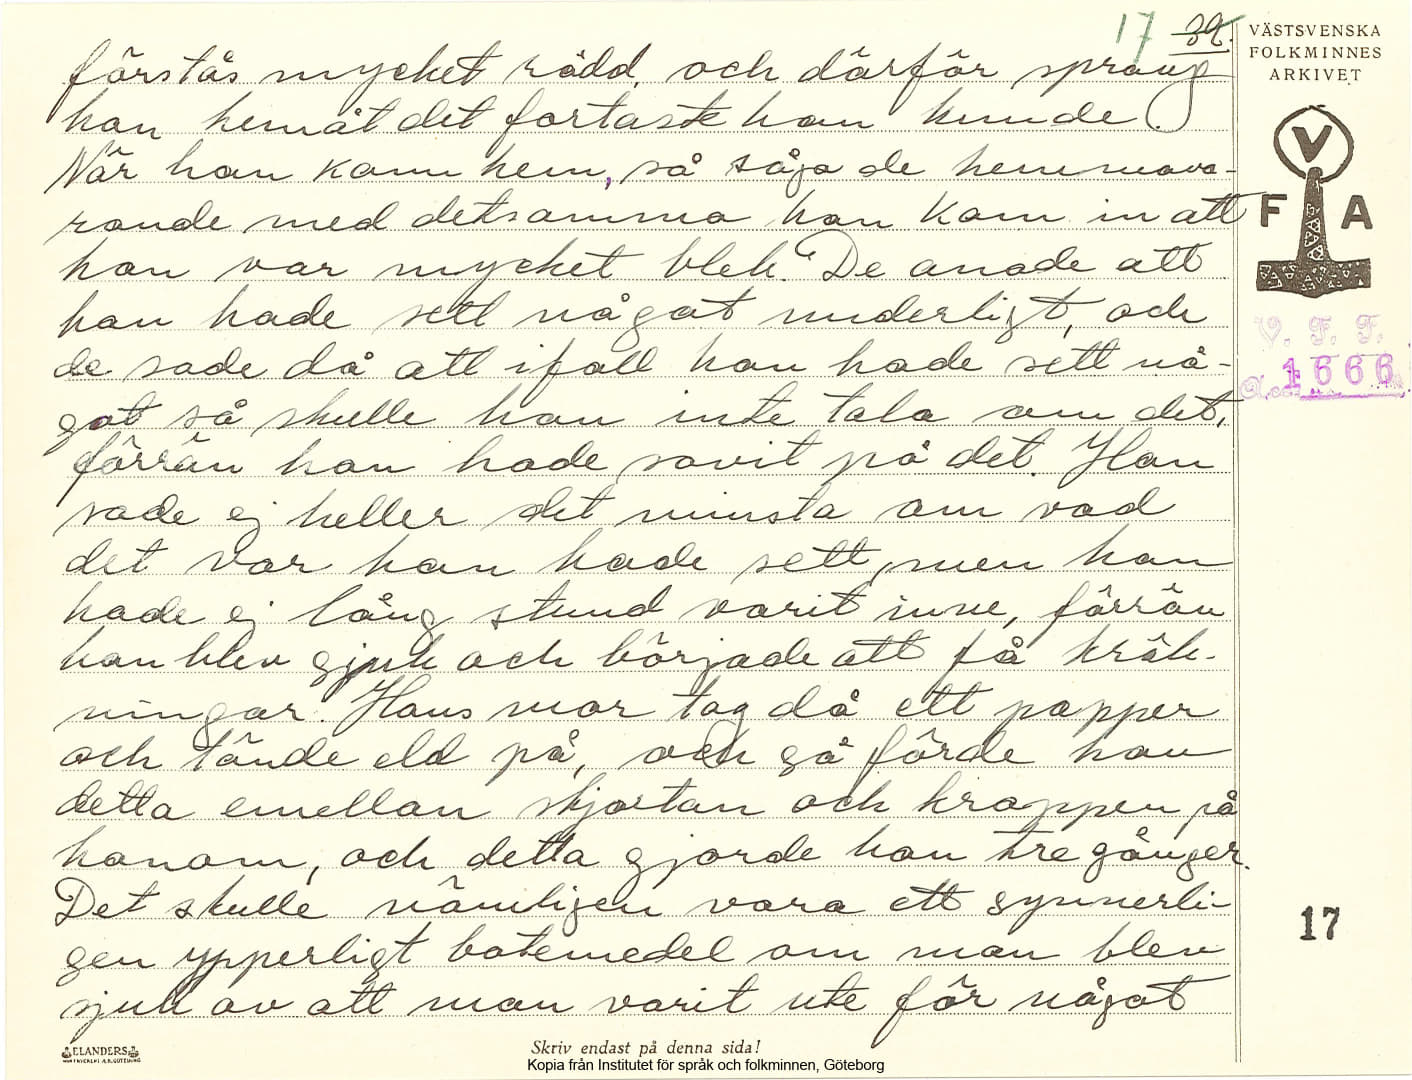 17 39.
VÄSTSVENSKA
FOLKMINNES
ARKIVET
V
F A
V. F. F.
1666
förstås mycket rädd, och därför sprang
han hemåt det fortaste han kunde.
När han kom hem, så såga de hemmava-
rande med detsamma han kom in att
han var mycket blek. De anade att
han hade sett något underligt, och
de sade då att ifall han hade sett nå-
got så skulle han inte tala om det,
förrän han hade sovit på det. Han
sade ej heller det minsta om vad
det var han hade sett, men han
hade ej lång stund varit inne, förrän
han blev sjuk och började att få kräk-
ningar. Hans mor tog då ett papper
och tände eld på, och så förde hon
detta emellan skjortan och kroppen på
honom, och detta gjorde hon tre gånger.
Det skulle nämligen vara ett synnerli-
gen ypperligt botemedel om man blev
sjuk av att man varit ute för något
17
ELANDERS
Skriv endast på denna sida!
Kopia från Institutet för språk och folkminnen, Göteborg